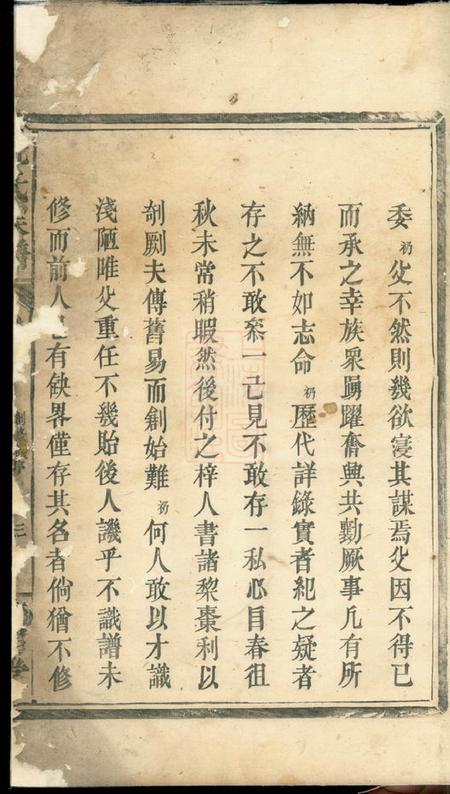 委礽必不然則幾欲寝其謀焉必因不得已
而承之幸族衆踴躍奮興共勷厥事凡有所
納無不如志命礽歷代詳錄實者紀之疑者
存之不敢叅一己見不敢存一私心目春徂
秋未常稍暇然後付之梓人書諸黎棗利以
剞劂夫傳舊易而創始難礽何人敢以才識
淺陋唯必重任不幾貽後人譏乎不識譜未
修而前人 有缺畧僅存其名者倘猶不修
氏族譜